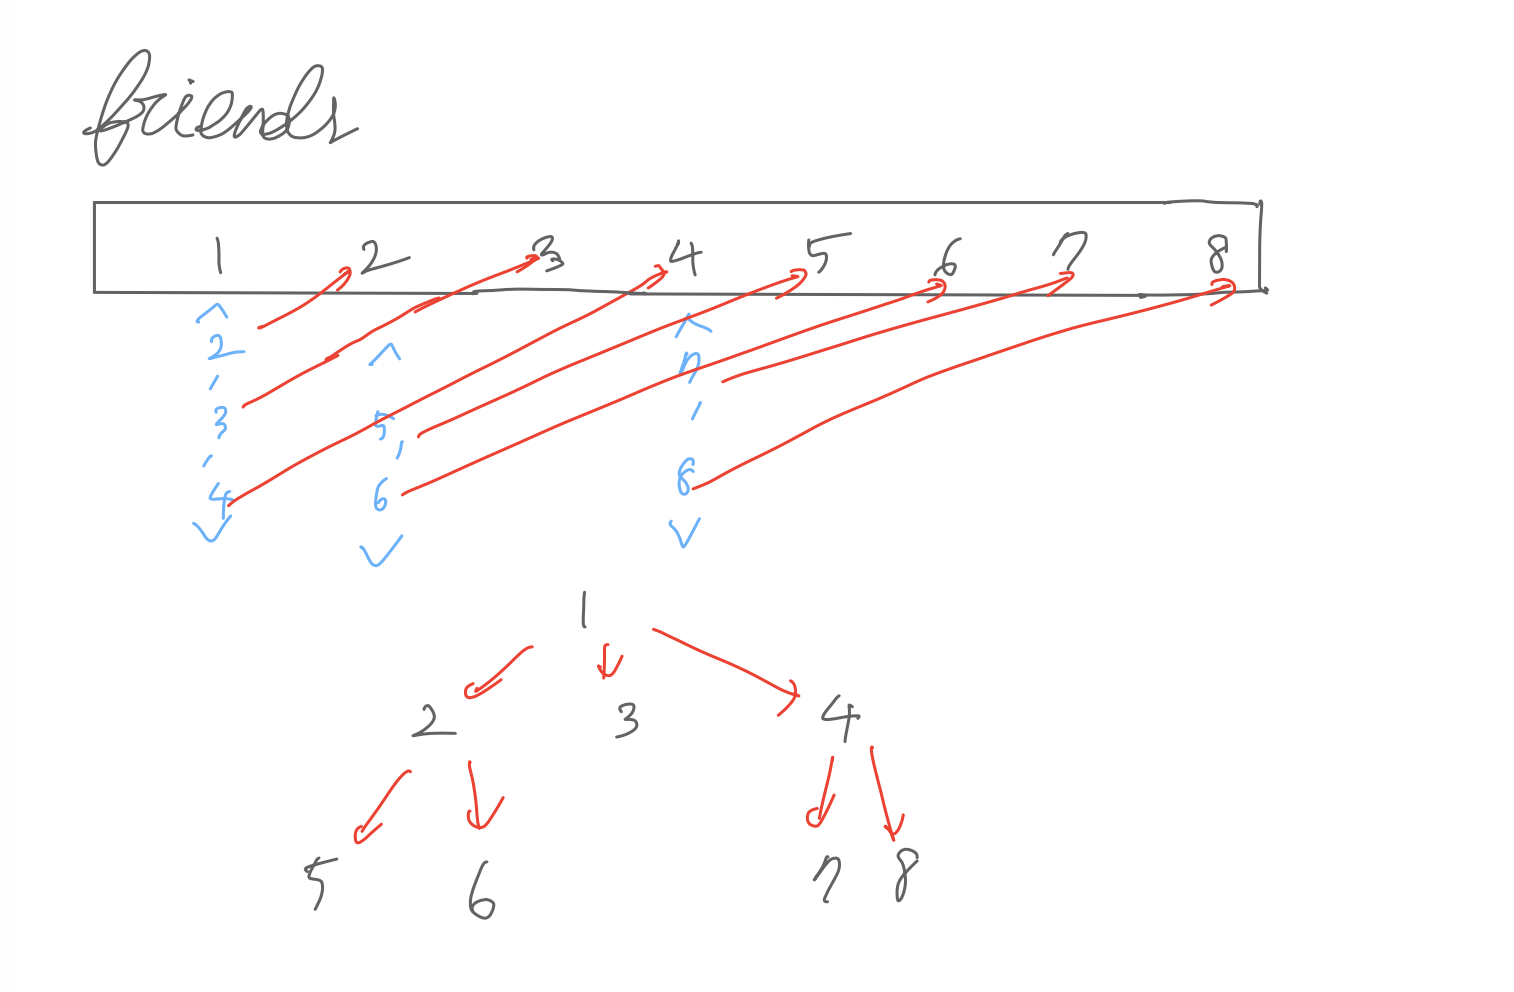 friends
1 2 3 4 5 6 7 8
< 2 , 3 , 4 >
< 5 , 6 >
< 7 , 8 >
1
2 3 4
5 6 7 8